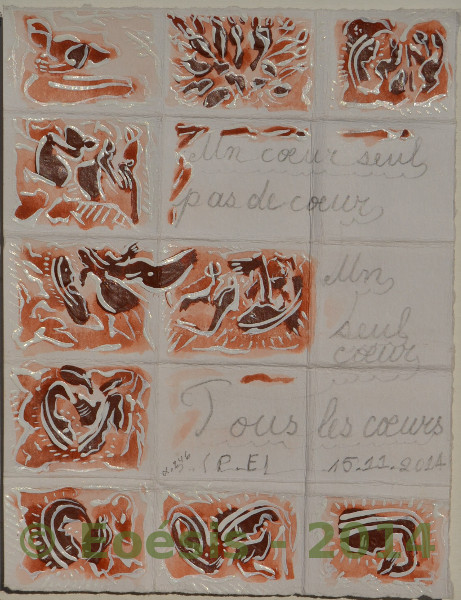 Un cœur seul
pas de cœur
Un
seul
cœur
Tous les cœurs
(P.E) 15.11.2014
© Eoésis - 2014